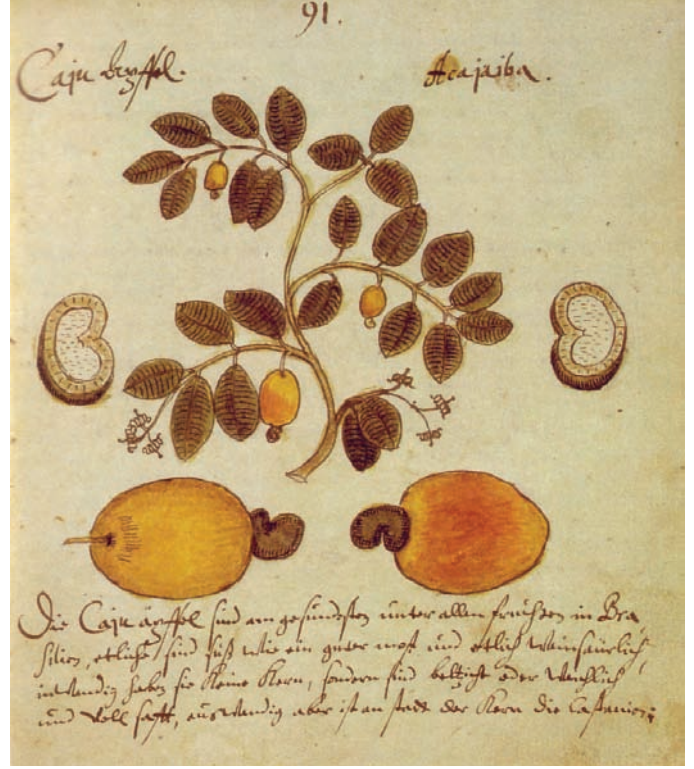 91.
Caju äpffel.
Acajaiba.
Die Caju äpffel sind am gesündsten unter allen früchten in Bra
silien, etliche sind süß wie ein guter most und etlich weinsäurlich,
inwendig haben sie keine kern, sondern sind oder weichlich
und voll safft, auswendig aber ist an statt der kern die Castanien: